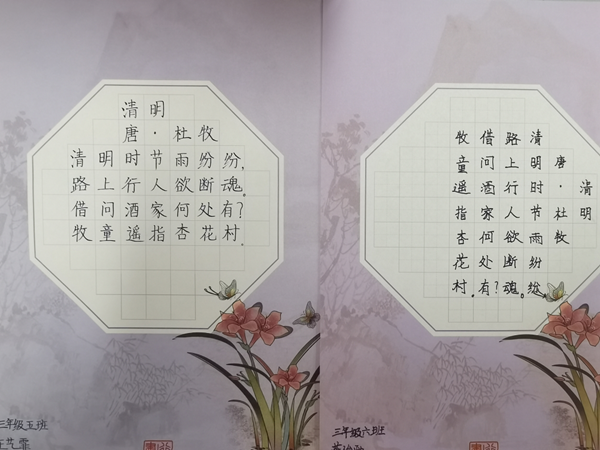 清明
唐·杜牧
清明时节雨纷纷,
路上行人欲断魂。
借问酒家何处有?
牧童遥指杏花村.
三年级五班
清明
唐·杜牧
清明时节雨纷纷.
路上行人欲断魂。
借问酒家何处有?
牧童遥指杏花村.
三年级六班